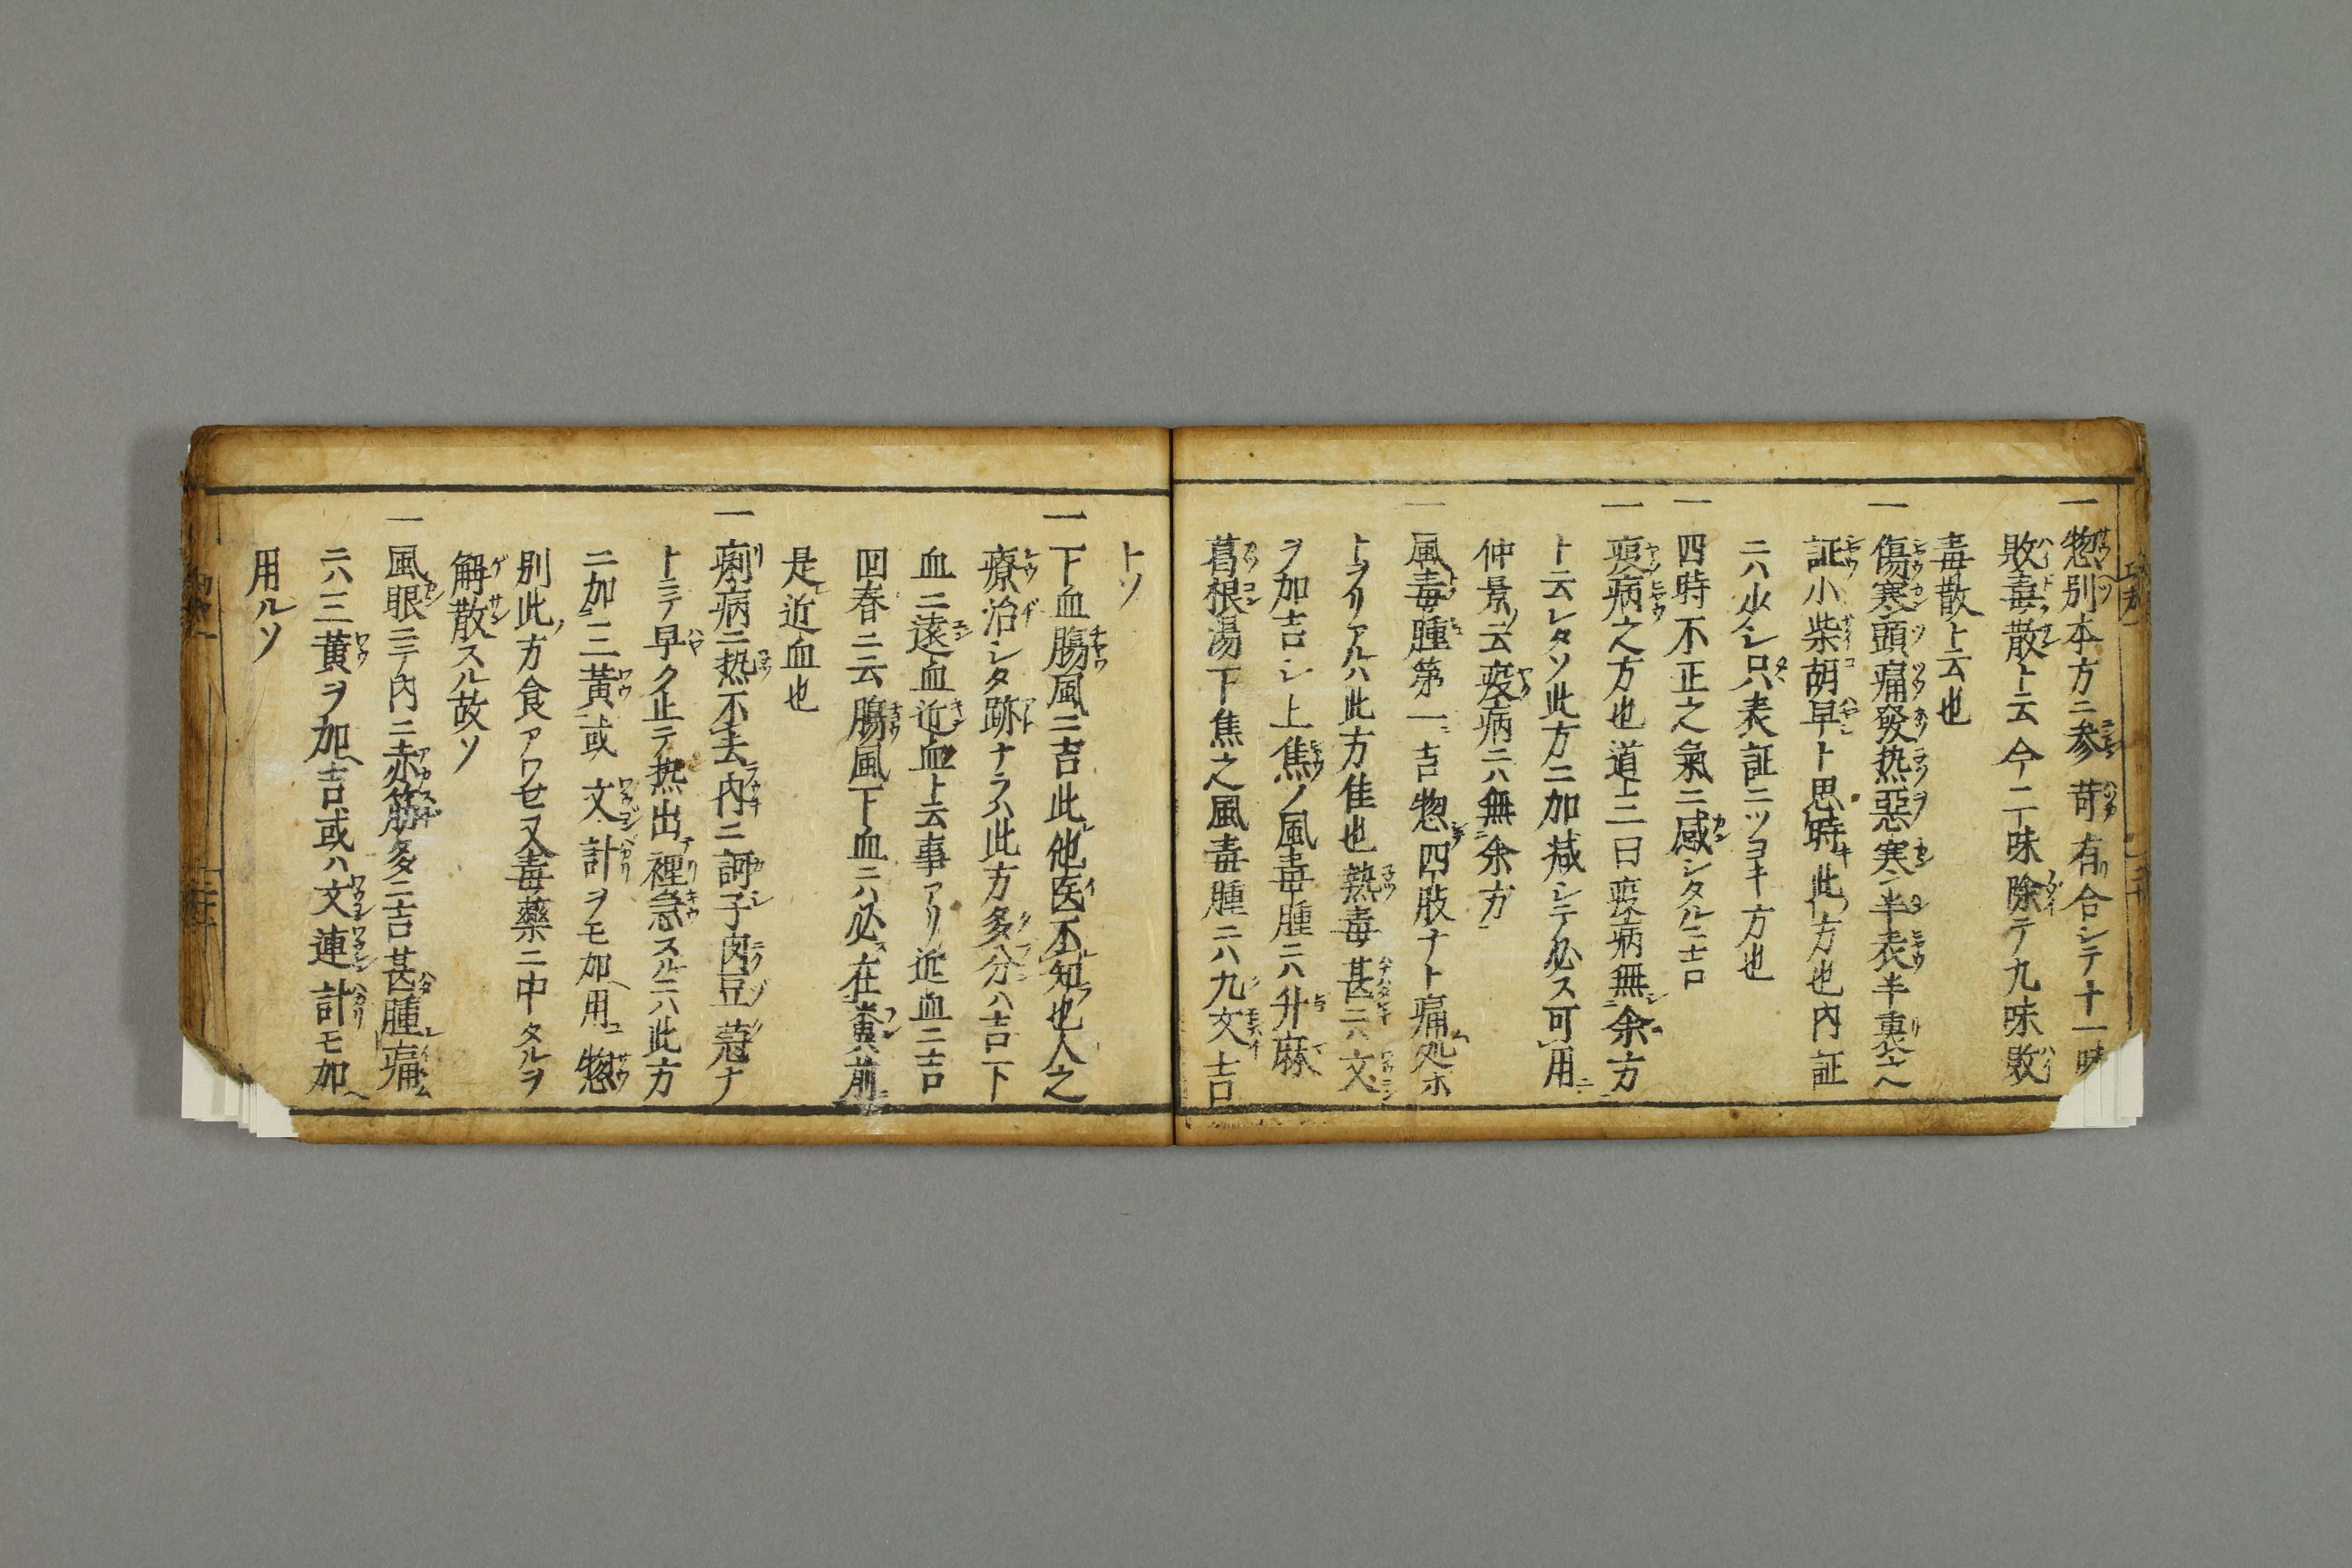 一惣別本方ニ参苛有合シテ十一味
敗毒散ト云今二味除テ九味敗
毒散ト云也
一傷寒頭痛發热惡寒半表半裏ニヘ
証小柴胡早ト思時此方也内証
ニハ少シ只表証ニツヨキ方也
一四時不正之氣ニ感シタルニ吉
一疫病之方也道三曰疫病無余方
ト云レタソ此方ニ加减シテ必ス可用
仲景云疫病ニハ無余方
一風毒腫第一吉惣四肢ナト痛処ホ
トヲリアルハ此方佳也熱毒甚ニハ文
ヲ加吉シ上焦ノ風毒腫ニハ升麻
葛根湯下焦之風毒腫ニハ九文吉
トソ
一下血腸風ニ吉此他医不知也人之
療治シタ跡ナラハ此方多分ハ吉下
血ニ遠血近血ト云事アリ近血ニ吉
回春ニ云腸風下血ニハ必在糞前
是近血也
一痢病ニ热不去内ニ訶子肉豆蔻ナ
トニテ早ク止テ热出裡急スルニハ此方
ニ加三黄或文計ヲモ加用惣
別此方食アワセ又毒藥ニ中タルヲ
解散スル故ソ
一風眼ニテ内ニ赤筋多ニ吉甚腫痛
ニハ三黄ヲ加吉或ハ文連計モ加
用ルソ